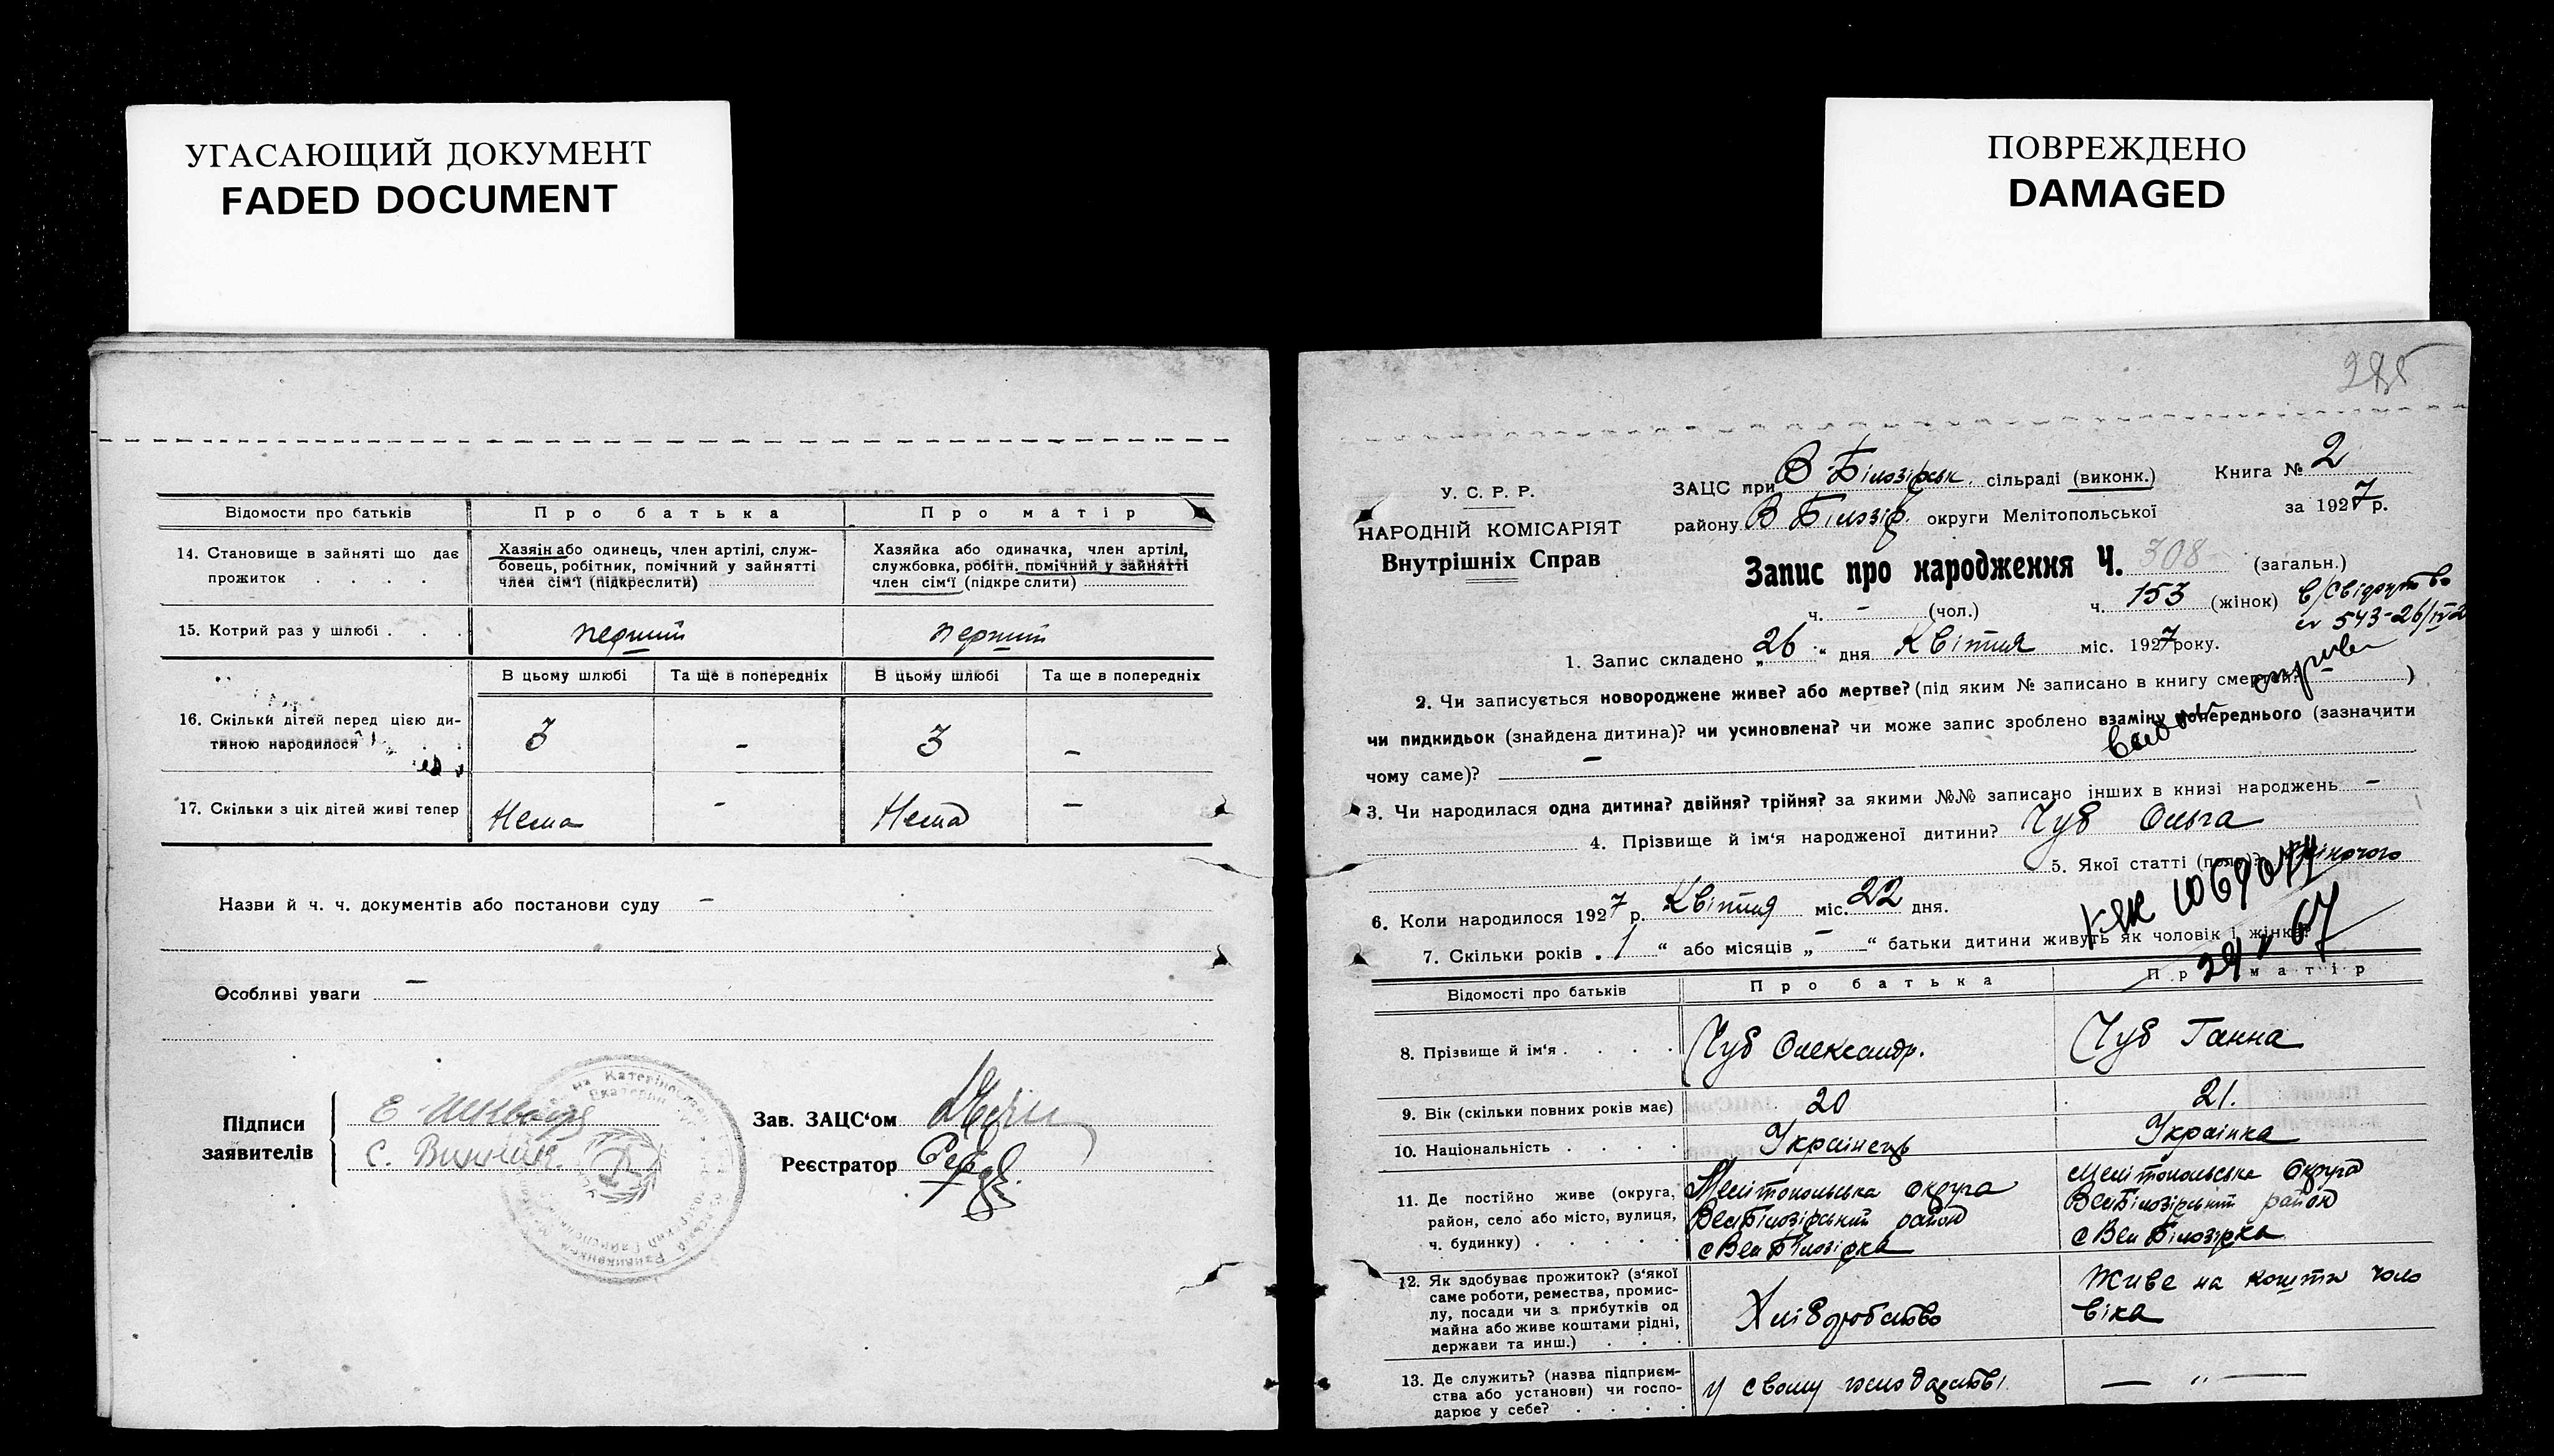 УГАСАЮЩИЙ ДОКУМЕНТ
FADED DOCUMENT
Відомости про батьків Про батька Про матір
14. Становище в зайняті що дає прожиток . . . .
Хазяін або одинець, член артілі, служ-
бовець, робітник, помічний у зайнятті
член сім'ї (підкреслити)
Хазяйка або одиначка, член артілі,
службовка, робітн. помічний у зайнятті
член сім'ї (підкре слити)
15. Котрий раз у шлюбі . . . перший перший
В цьому шлюбі Та ще в попередніх В цьому шлюбі Та ще в попередніх
16. Скільки дітей перед цією ди-
тиною народилося 3 - 3 -
17. Скільки з ціх дітей живі тепер Нема - Нема -
Назви й ч. ч. документів або постанови суду -
Особливі уваги -
Підписи
заявителів
С.
Зав. ЗАЦС'ом
Реєстратор
ПОВРЕЖДЕНО
DAMAGED
285
У. С. Р. Р.
НАРОДНІЙ КОМІСАРІЯТ
Внутрішніх Справ
ЗАЦС при В Білозірськ. сільраді (виконк.) Книга № 2
району В Білозір. округи Мелітопольської за 1927 р.
Запис про народження Ч. 308 (загальн.)
ч. - (чол.) ч. 153 (жінок)
543-26/IV
1. Запис складено „26“ дня Квітня міс. 1927 року.
2. Чи записується новороджене живе? або мертве? (під яким № записано в книгу смертей? )
чи пидкидьок (знайдена дитина)? чи усиновлена? чи може запис зроблено взаміну попереднього (зазначити
чому саме)? -
3. Чи народилася одна дитина? двійня? трійня? за якими №№ записано інших в книзі народжень -
4. Прізвище й ім'я народженої дитини? Чуб Ольга
5. Якої статті (полу)? жіночого
6. Коли народилося 1927 р. Квітня міс. 22 дня.
7. Скільки років „1“ або місяців „-“ батьки дитини живуть як чоловік і жінка?
67
Відомості про батьків Про батька Про матір
8. Прізвище й ім'я . . . . Чуб Олександр. Чуб Ганна
9. Вік (скільки повних років має) 20 21.
10. Національність . . . . Українець Українка
11. Де постійно живе (округа,
район, село або місто, вулиця,
ч. будинку) . . . . .
Мелітопольська округа
Вел Білозірський район
с Вел Білозірка
Мелітопольська Округа
Вел Білозірський район
с Вел Білозірка
12. Як здобуває прожиток? (з'якої
саме роботи, ремества, промис-
лу, посади чи з прибутків од
майна або живе коштами рідні,
держави та инш.) . . .
Хліборобство
Живе на кошти чоло
віка
13. Де служить? (назва підприєм-
ства або установи) чи госпо-
дарює у себе? . . . .
у свому господарстві
— „ —